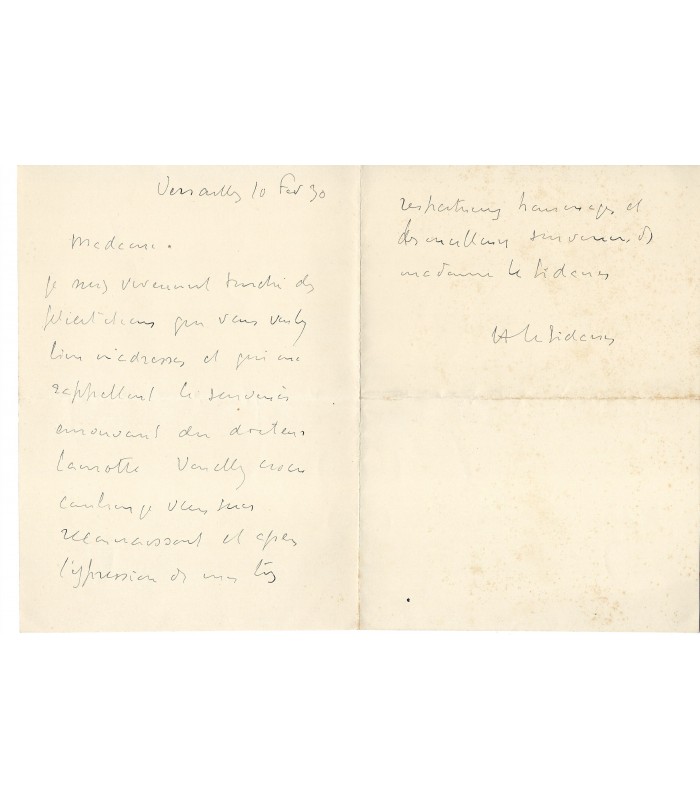 Versailles 10 Fev 30
Madame.
je suis vivement touché des
félicitations que vous voulez
bien m'adresser et qui me
rappellent le souvenir
émouvant du docteur
Lamotte Veuillez croire
combien je vous suis
reconnaissant et agréer
l'expression de mes très
respectueux hommages et
des meilleurs souvenirs de
madame Le Sidaner
H Le Sidaner